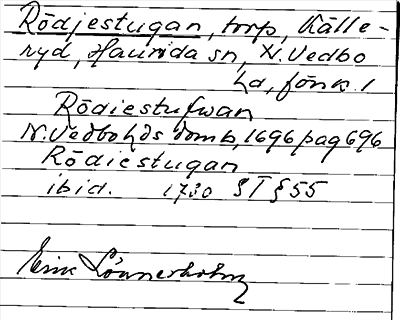 Rödjestugan, torp, Källe-
ryd, Haurida sn, N. Vedbo
hd, Jönk. l
Rödiestufwan
N. Vedbo hds domb, 1696 pag 696
Rödiestugan
ibid. 1730 ST § 55
Erik Lönnerholm